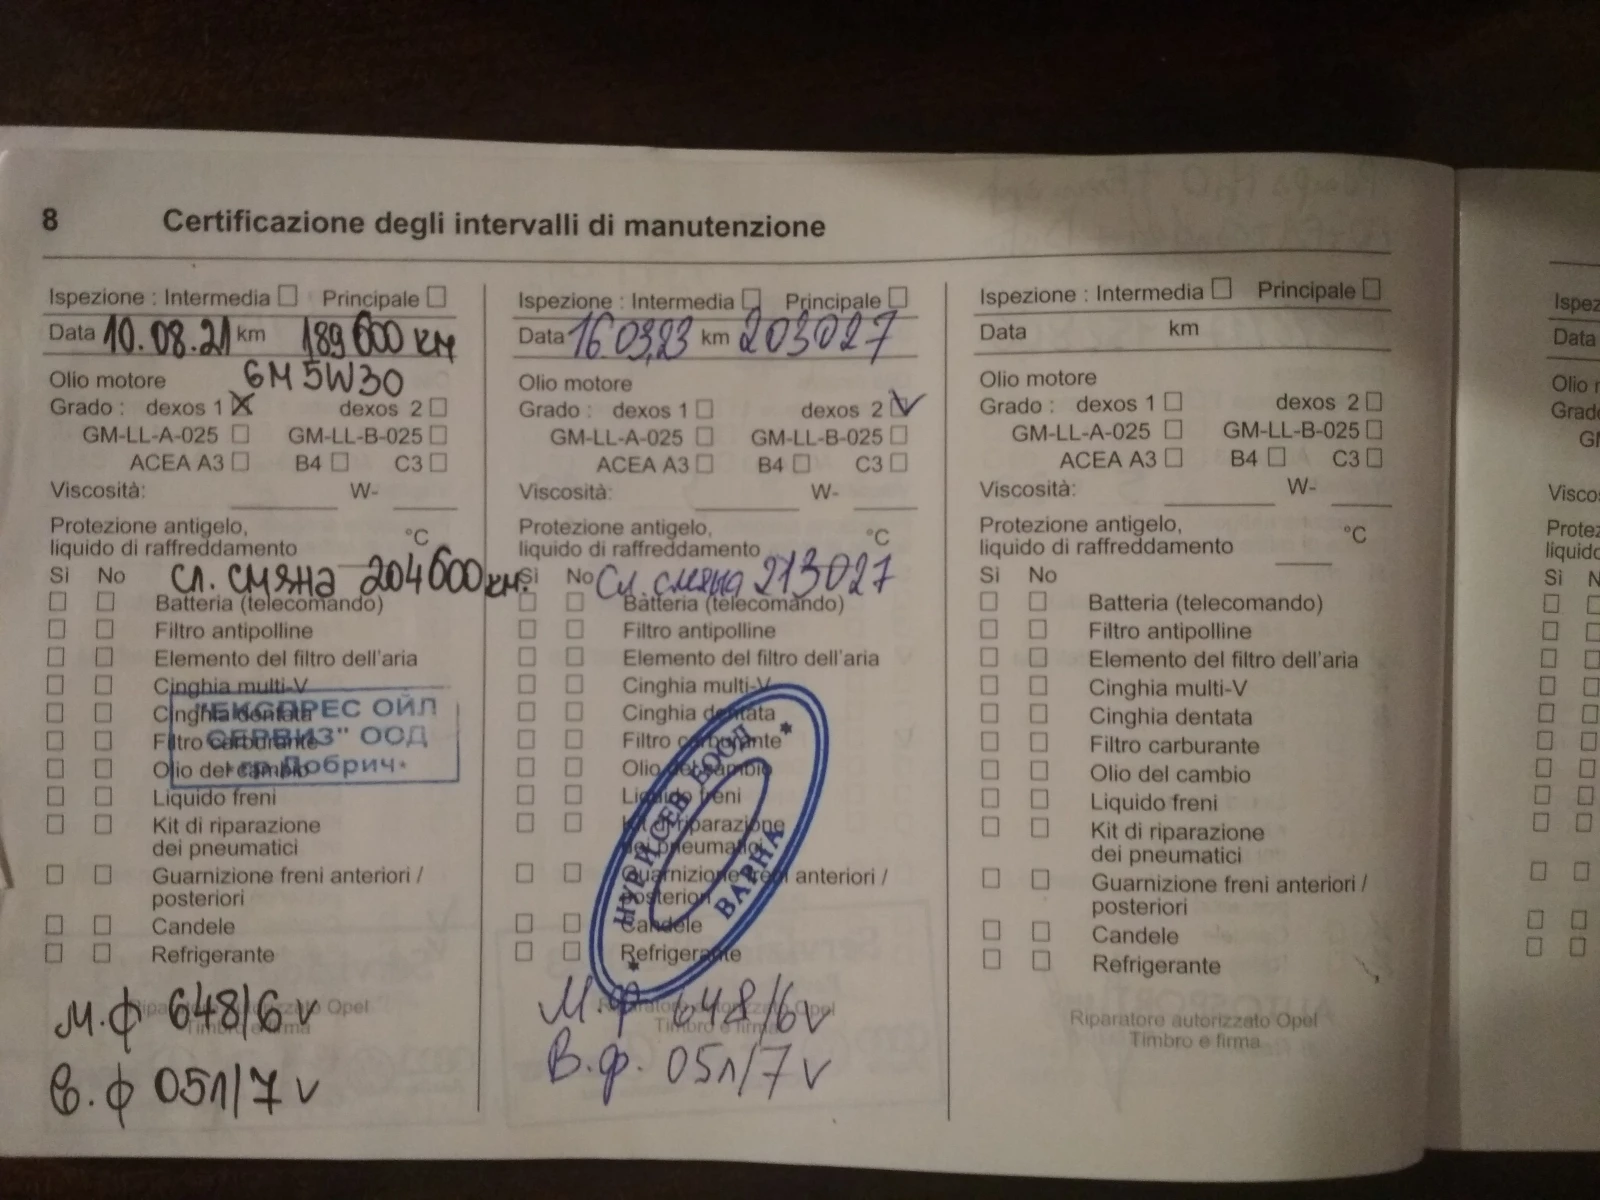 8 Certificazione degli intervalli di manutenzione
Ispezione : Intermedia Principale
Data 10.08.21 km 189600 км
Olio motore GM 5W30
Grado : dexos 1 dexos 2
GM-LL-A-025 GM-LL-B-025
ACEA A3 B4 C3
Viscosità: W-
Protezione antigelo,
liquido di raffreddamento °C
Si No сл. смяна 204600 км.
Batteria (telecomando)
Filtro antipolline
Elemento del filtro dell'aria
Cinghia multi-V
Cinghia dentata
Filtro carburante
Olio del cambio
Liquido freni
Kit di riparazione
dei pneumatici
Guarnizione freni anteriori /
posteriori
Candele
Refrigerante
"ЕКСПРЕС ОЙЛ
СЕРВИЗ" ООД
гр. Добрич
Riparatore autorizzato Opel
Timbro e firma
м.ф 648/6 v
в.ф 051/7 v
Ispezione : Intermedia Principale
Data 16.03.23 km 203027
Olio motore
Grado : dexos 1 dexos 2
GM-LL-A-025 GM-LL-B-025
ACEA A3 B4 C3
Viscosità: W-
Protezione antigelo,
liquido di raffreddamento °C
Si No Сл. смяна 213027
Batteria (telecomando)
Filtro antipolline
Elemento del filtro dell'aria
Cinghia multi-V
Cinghia dentata
Filtro carburante
Olio del cambio
Liquido freni
Kit di riparazione
dei pneumatici
Guarnizione freni anteriori /
posteriori
Candele
Refrigerante
НУРИ СЕВ ЕООД
ВАРНА
Riparatore autorizzato Opel
Timbro e firma
М.ф 648/6 v
В.ф. 051/7 v
Ispezione : Intermedia Principale
Data km
Olio motore
Grado : dexos 1 dexos 2
GM-LL-A-025 GM-LL-B-025
ACEA A3 B4 C3
Viscosità: W-
Protezione antigelo,
liquido di raffreddamento °C
Si No
Batteria (telecomando)
Filtro antipolline
Elemento del filtro dell'aria
Cinghia multi-V
Cinghia dentata
Filtro carburante
Olio del cambio
Liquido freni
Kit di riparazione
dei pneumatici
Guarnizione freni anteriori /
posteriori
Candele
Refrigerante
Riparatore autorizzato Opel
Timbro e firma
Data
Si